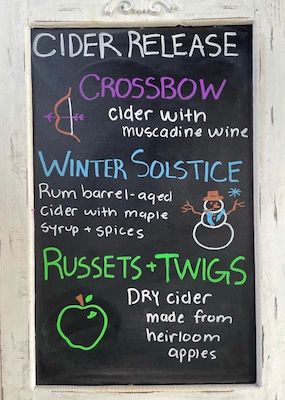 CIDER RELEASE
CROSSBOW
cider with
muscadine wine
WINTER SOLSTICE
Rum barrel-aged
cider with maple
syrup + spices
RUSSETS + TWIGS
DRY cider
made from
heirloom
apples